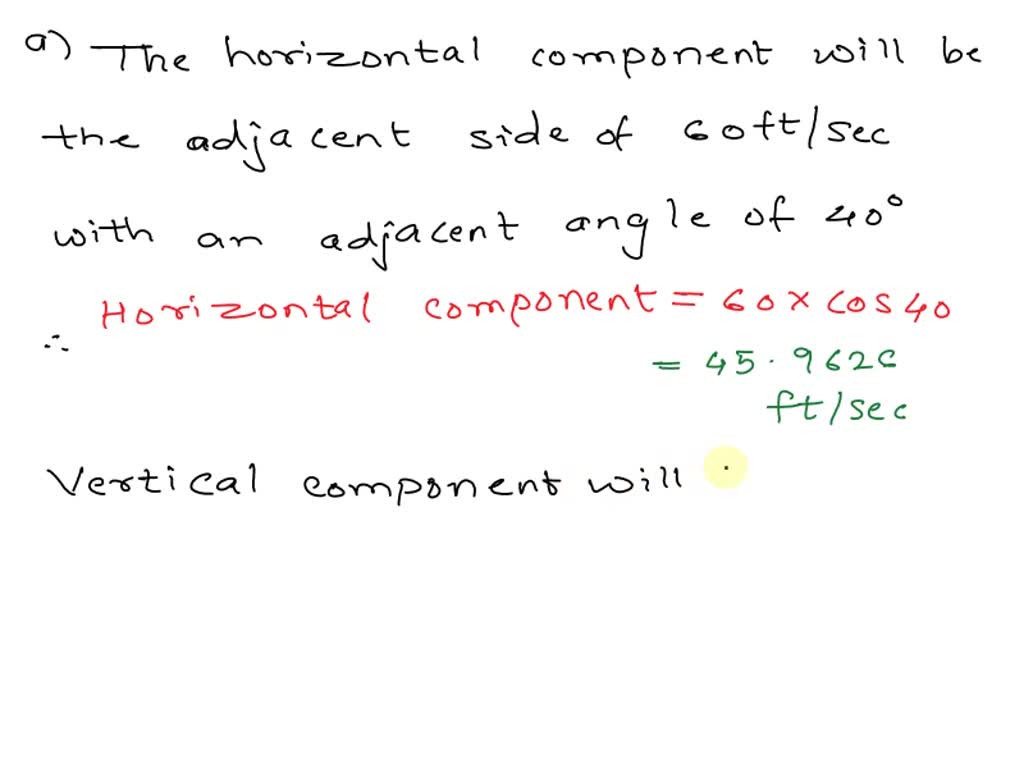 a) The horizontal component will be
the adjacent side of 60ft/sec
with an adjacent angle of 40°
∴ Horizontal component = 60 × cos 40
= 45.9626
ft/sec
Vertical component will